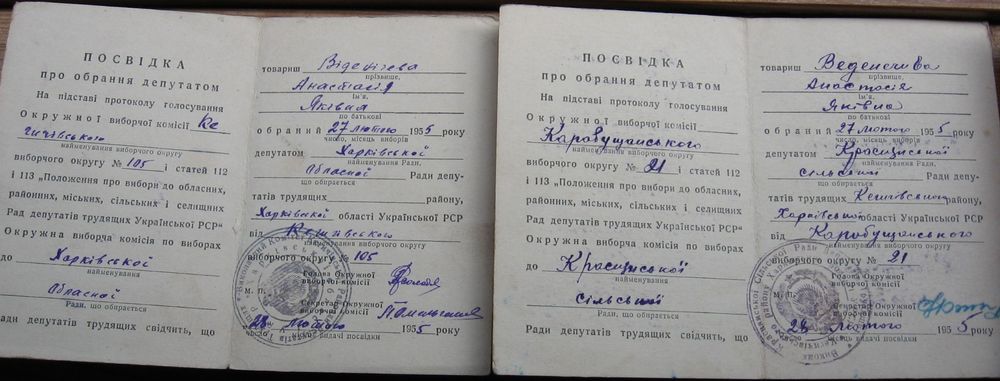 ПОСВІДКА
про обрання депутатом
На підставі протоколу голосування
Окружної виборчої комісії Ке
гичівського
найменування виборчого округу
виборчого округу № 105 і статей 112
і 113 „Положення про вибори до обласних,
районних, міських, сільських і селищних
Рад депутатів трудящих Української РСР“
Окружна виборча комісія по виборах
до Харківської
найменування
Обласної
Ради, що обирається
Ради депутатів трудящих свідчить, що
товариш Віденєєва
прізвище,
Анастасія
ім'я,
Яківна
по батькові
обраний 27 лютого 1955 року
число, місяць виборів
депутатом Харківської
найменування Ради,
Обласної Ради депу-
що обирається
татів трудящих району,
Харківської області Української РСР
від Кегичівського
найменування виборчого округу
виборчого округу № 105
Голова Окружної
виборчої комісії
М. П.
Секретар Окружної
виборчої комісії
28 лютого 1955 року
місяць видачі посвідки
ПОСВІДКА
про обрання депутатом
На підставі протоколу голосування
Окружної виборчої комісії
Каробущанського
найменування виборчого округу
виборчого округу № 21 і статей 112
і 113 „Положення про вибори до обласних,
районних, міських, сільських і селищних
Рад депутатів трудящих Української РСР“
Окружна виборча комісія по виборах
до Красицнської
найменування
сільський
Ради, що обирається
Ради депутатів трудящих свідчить, що
товариш Веденєєва
прізвище,
Анастасія
ім'я,
Яківна
по батькові
обраний 27 лютого 1955 року
число, місяць виборів
депутатом
найменування Ради,
сільський Ради депу-
що обирається
татів трудящих Кегичівського району,
Харківської області Української РСР
від Каробущанського
найменування виборчого округу
виборчого округу № 21
Голова Окружної
виборчої комісії
М. П.
Секретар Окружної
виборчої комісії
28 лютого 1955 року
місяць видачі посвідки